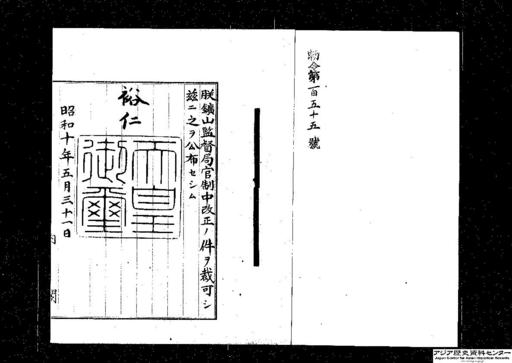 勅令第百五十五號
朕鑛山監督局官制中改正ノ件ヲ裁可シ
茲ニ之ヲ公布セシム
裕仁
天皇御璽
昭和十年五月三十一日
内閣
アジア歴史資料センター
Japan Center for Asian Historical Records